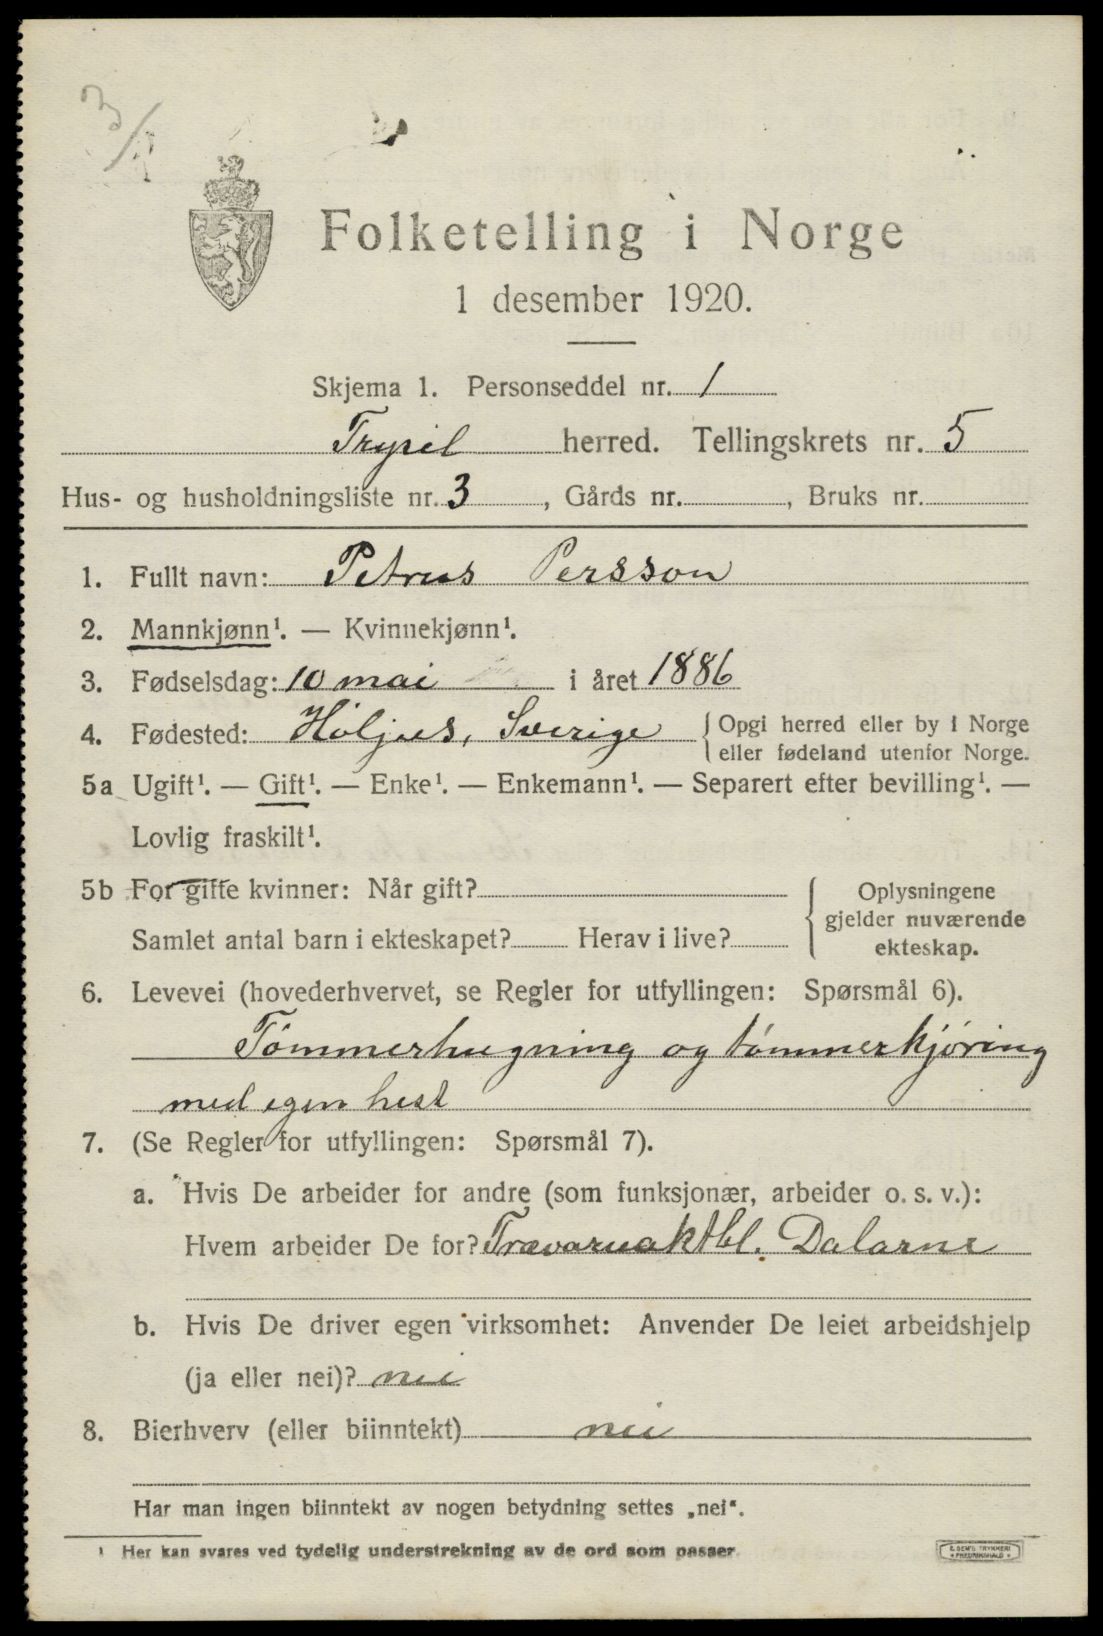 3/1
Folketelling i Norge
1 desember 1920.
Skjema 1. Personseddel nr. 1
Trysil herred. Tellingskrets nr. 5
Hus- og husholdningsliste nr. 3, Gårds nr. , Bruks nr.
1. Fullt navn: Petrus Persson
2. Mannkjønn¹. — Kvinnekjønn¹.
3. Fødselsdag: 10 mai i året 1886
4. Fødested: Höljes, Sverige { Opgi herred eller by i Norge
eller fødeland utenfor Norge.
5a Ugift¹. — Gift¹. — Enke¹. — Enkemann¹. — Separert efter bevilling¹. —
Lovlig fraskilt¹.
5b For gifte kvinner: Når gift? { Oplysningene
gjelder nuværende
Samlet antal barn i ekteskapet? Herav i live?
ekteskap.
6. Levevei (hovederhvervet, se Regler for utfyllingen: Spørsmål 6).
Tömmerhugning og tömmerkjöring
med egen hest
7. (Se Regler for utfyllingen: Spørsmål 7).
a. Hvis De arbeider for andre (som funksjonær, arbeider o. s. v.):
Hvem arbeider De for? Trævaruaktbl. Dalarne
b. Hvis De driver egen virksomhet: Anvender De leiet arbeidshjelp
(ja eller nei)? nei
8. Bierhverv (eller biinntekt) nei
Har man ingen biinntekt av nogen betydning settes „nei“.
¹ Her kan svares ved tydelig understrekning av de ord som passer.
E. SEM'S TRYKKERI
• FREDRIKSHALD •